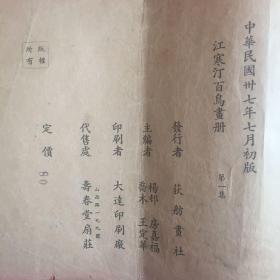 中華民國卅七年七月初版
江寒汀百鳥畫册 第一集
發行者 荻舫畫社
主編者 楊邨 房嘉福
喬木 王定華
印刷者 大達印刷廠
代售處 壽春堂扇莊
定價
版權所有